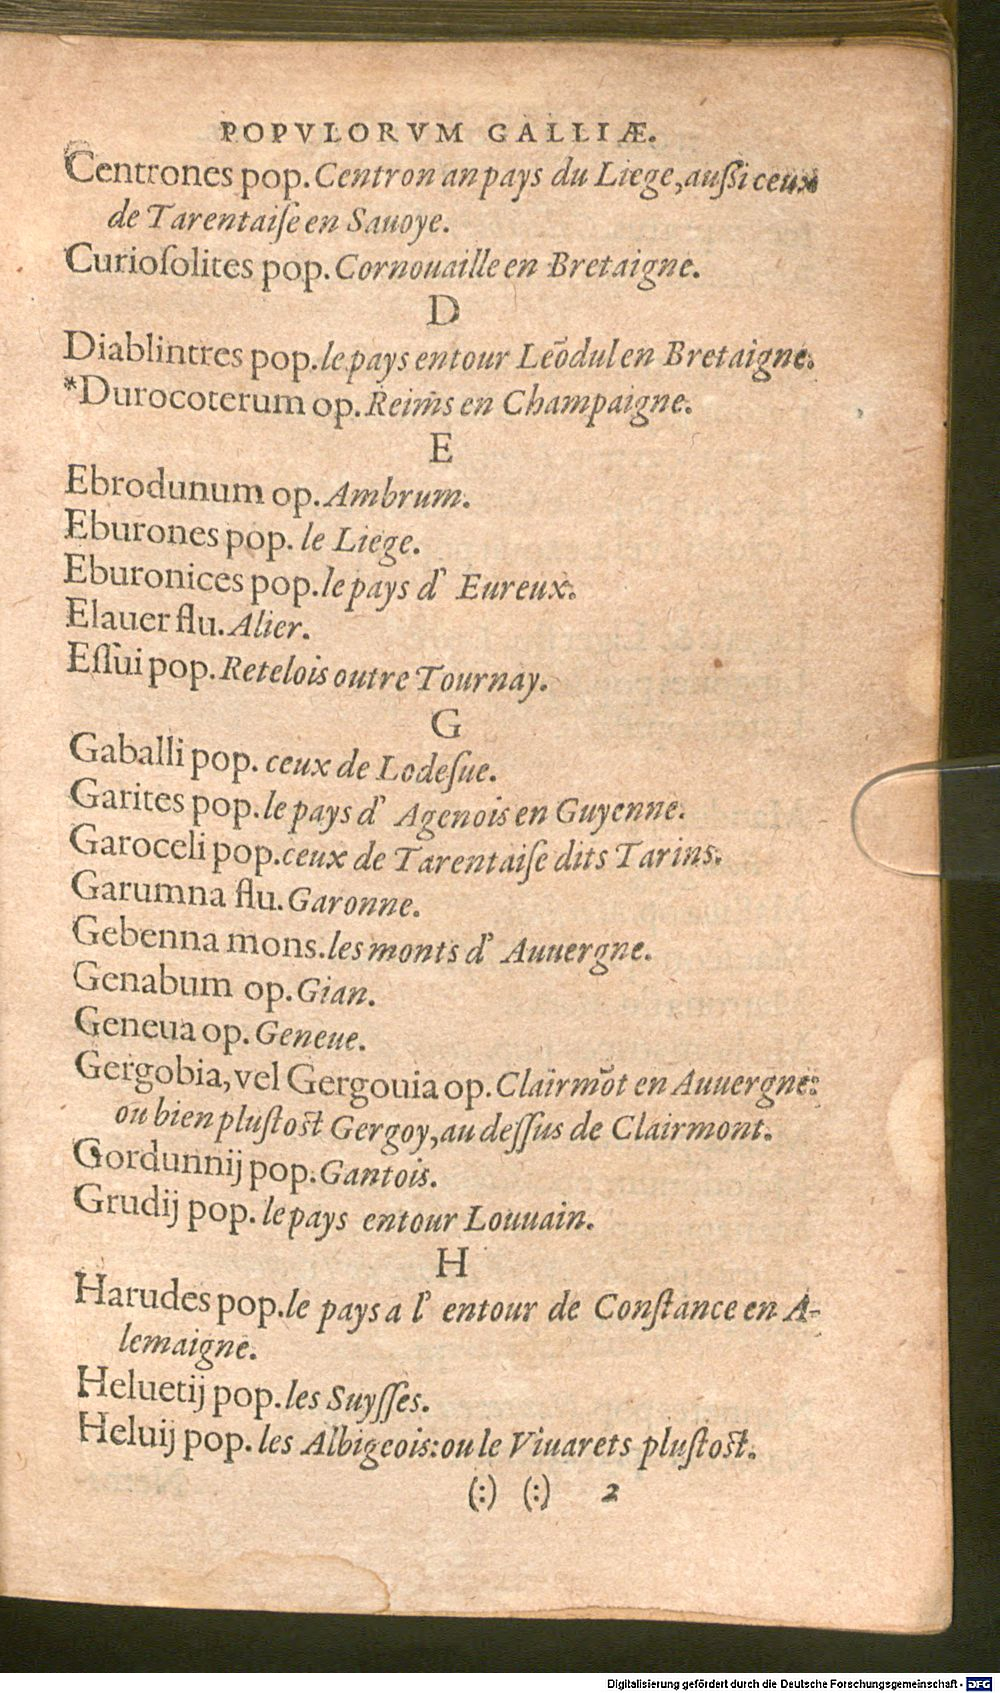 POPVLORVM GALLIÆ.
Centrones pop. Centron an pays du Liege, außi ceux
de Tarentaiſe en Sauoye.
Curioſolites pop. Cornouaille en Bretaigne.
D
Diablintres pop. le pays entour Leõdul en Bretaigne.
*Durocoterum op. Reims en Champaigne.
E
Ebrodunum op. Ambrum.
Eburones pop. le Liege.
Eburonices pop. le pays d' Eureux.
Elauer flu. Alier.
Eſſui pop. Retelois outre Tournay.
G
Gaballi pop. ceux de Lodeſue.
Garites pop. le pays d' Agenois en Guyenne.
Garoceli pop. ceux de Tarentaiſe dits Tarins.
Garumna flu. Garonne.
Gebenna mons. les monts d' Auuergne.
Genabum op. Gian.
Geneua op. Geneue.
Gergobia, vel Gergouia op. Clairmõt en Auuergne:
ou bien pluſtoſt Gergoy, au deſſus de Clairmont.
Gordunnij pop. Gantois.
Grudij pop. le pays entour Louuain.
H
Harudes pop. le pays a l' entour de Conſtance en A-
lemaigne.
Heluetij pop. les Suyſſes.
Heluij pop. les Albigeois: ou le Viuarets pluſtoſt.
(:) (:) 2
Digitalisierung gefördert durch die Deutsche Forschungsgemeinschaft - DFG